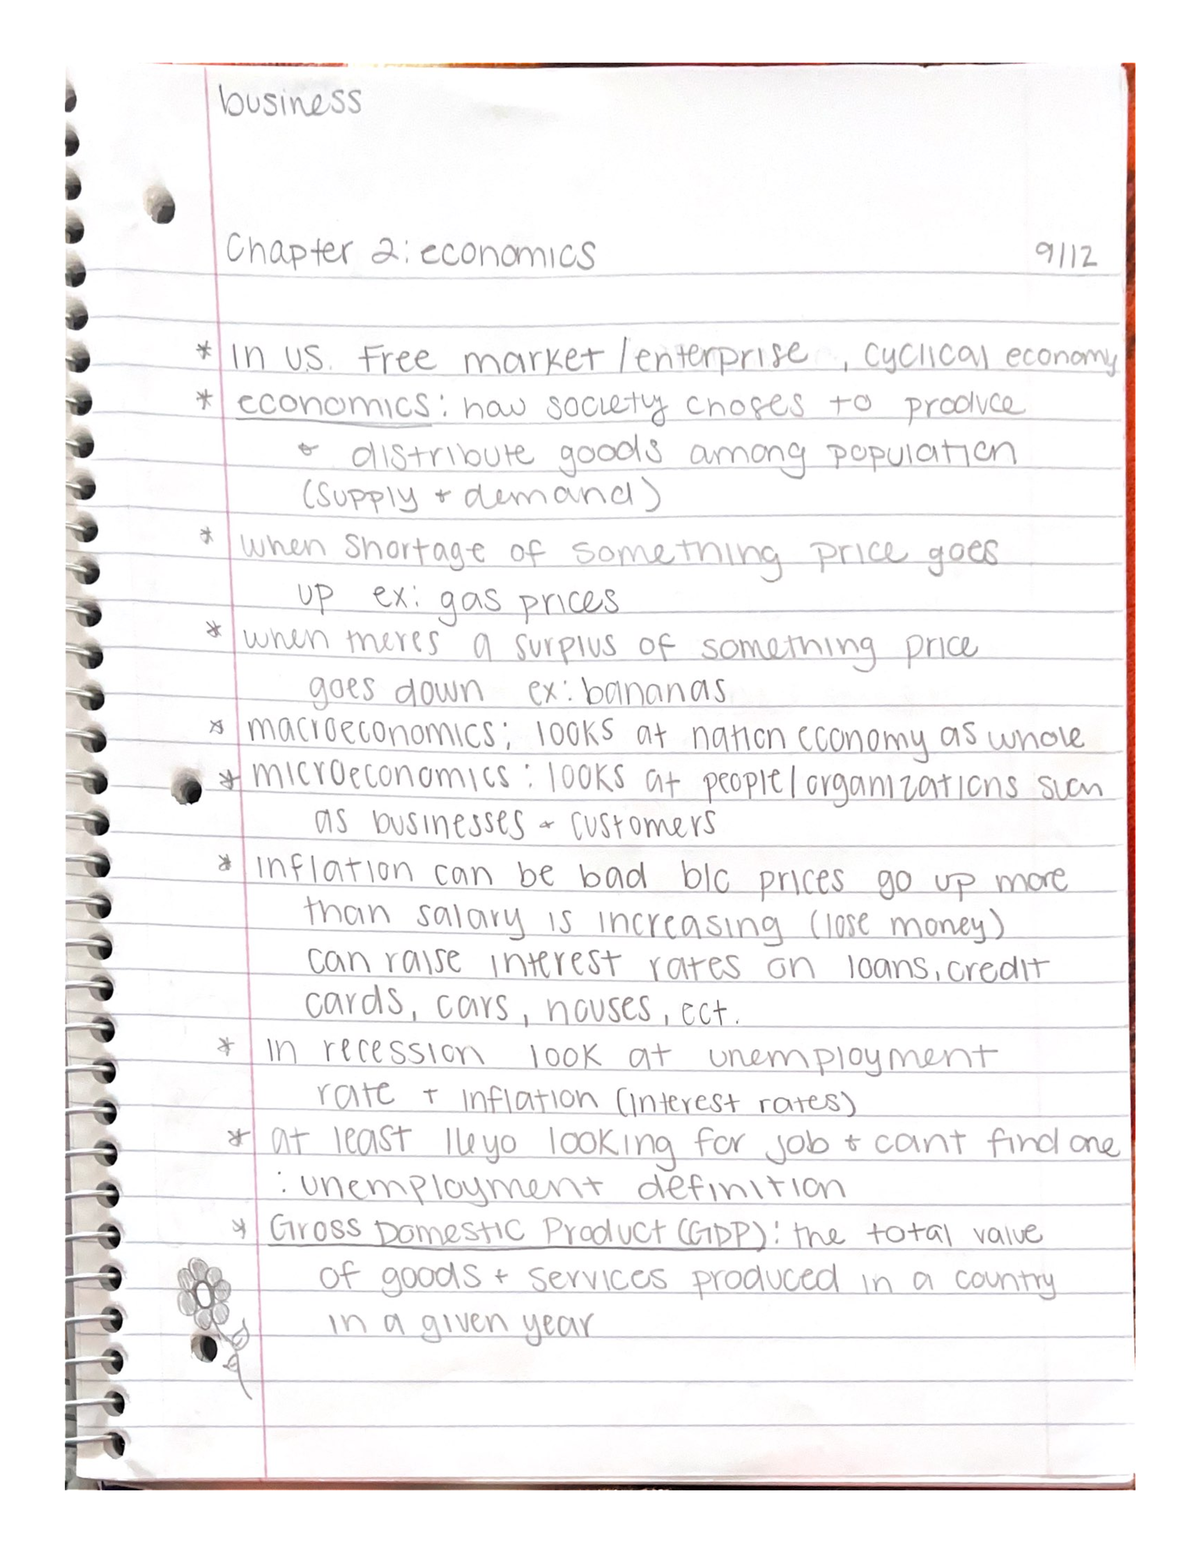 business
Chapter 2: economics 9/12
* In US. Free market/enterprise, cyclical economy
* economics: how society choses to produce
+ distribute goods among population
(supply + demand)
* when shortage of something price goes
up ex: gas prices
* when theres a surplus of something price
goes down ex: bananas
* macroeconomics: looks at nation economy as whole
* microeconomics: looks at people/organizations such
as businesses + customers
* inflation can be bad b/c prices go up more
than salary is increasing (lose money)
can raise interest rates on loans, credit
cards, cars, houses, ect.
* in recession look at unemployment
rate + inflation (interest rates)
* at least 16yo looking for job + cant find one
: unemployment definition
* Gross Domestic Product (GDP): the total value
of goods + services produced in a country
in a given year